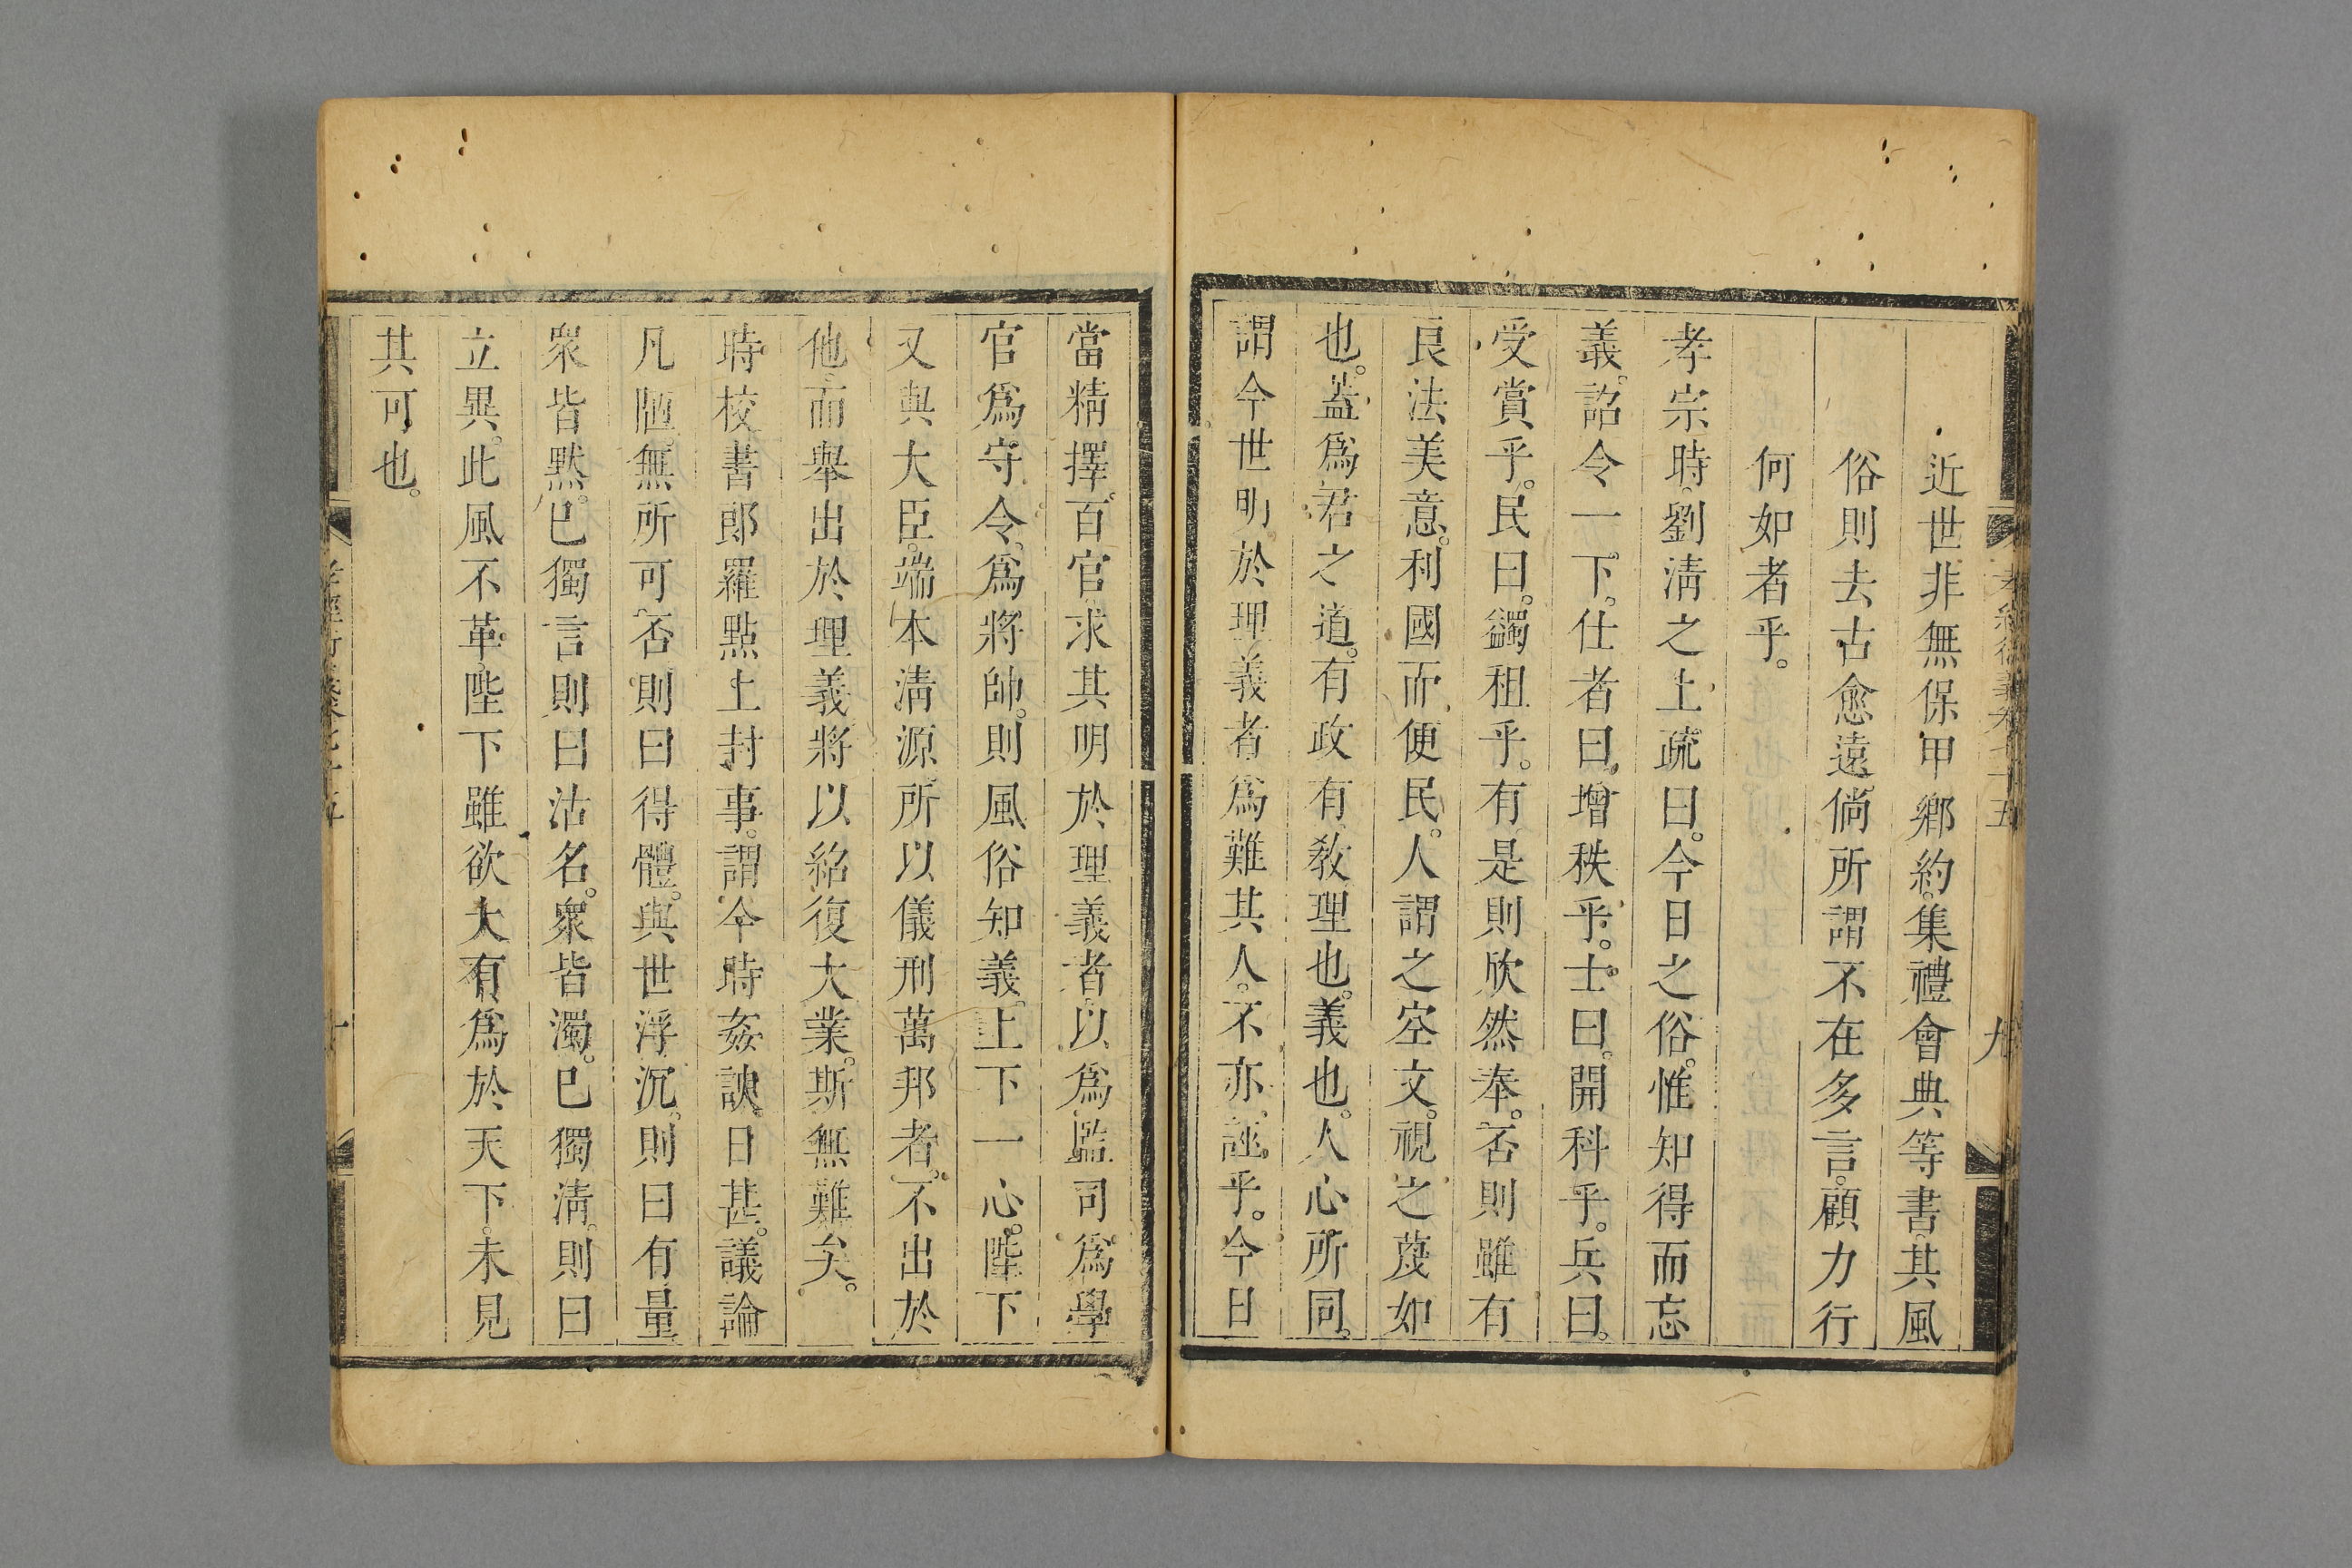 近世非無保甲鄉約。集禮會典等書。其風
俗則去古愈遠。倘所謂不在多言。顧力行
何如者乎。
孝宗時。劉淸之上疏曰。今日之俗。惟知得而忘
義。詔令一下。仕者曰。增秩乎。士曰。開科乎。兵曰。
受賞乎。民曰。蠲租乎。有是則欣然奉。否則雖有
良法美意。利國而便民。人謂之空文。視之蔑如
也。蓋爲君之道。有政有敎。理也。義也。人心所同。
謂今世明於理義者爲難其人。不亦誣乎。今日
當精擇。百官求其明於理義者。以爲監司。爲學
官爲守令。爲將帥。則風俗知義。上下一心。陛下
又與大臣。端本淸源。所以儀刑萬邦者。不出於
他。而舉出於理義。將以紹復大業。斯無難矣。
時校書郎羅點上封事。謂今時姦諛日甚。議論
凡陋。無所可否。則曰得體。與世浮沉。則曰有量
衆皆默。已獨言則曰沽名。衆皆濁。已獨淸。則曰
立異。此風不革。陛下雖欲大有爲於天下。未見
其可也。
孝經衍義卷七十五
九